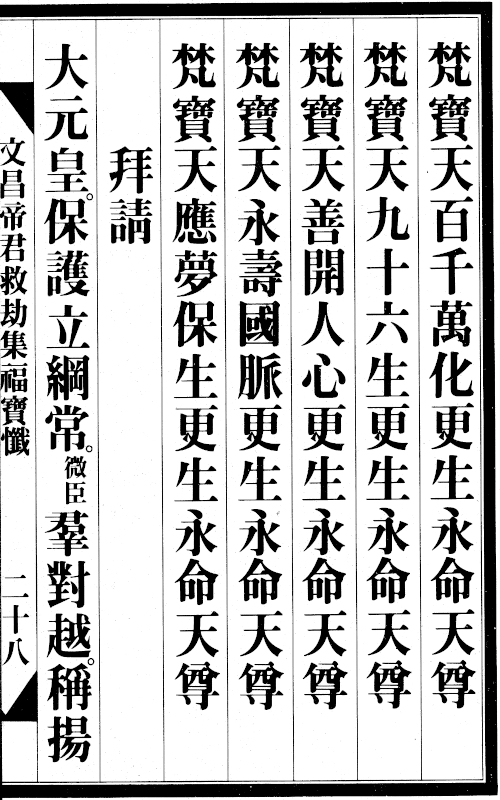 梵寶天百千萬化更生永命天尊
梵寶天九十六生更生永命天尊
梵寶天善開人心更生永命天尊
梵寶天永壽國脈更生永命天尊
梵寶天應夢保生更生永命天尊
拜請
大元皇。保護立綱常。微臣羣對越。稱揚
文昌帝君救劫集福寶懺 二十八